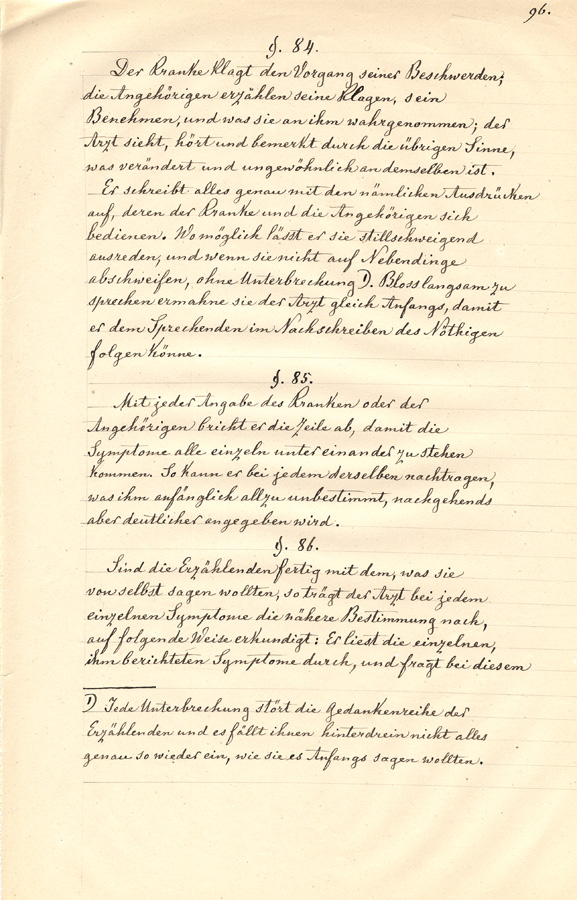 96.
§. 84.
Der Kranke klagt den Vorgang seiner Beschwerden;
die Angehörigen erzählen seine Klagen, sein
Benehmen, und was sie an ihm wahrgenommen; der
Arzt sieht, hört und bemerkt durch die übrigen Sinne,
was verändert und ungewöhnlich an demselben ist.
Er schreibt alles genau mit den nämlichen Ausdrücken
auf, deren der Kranke und die Angehörigen sich
bedienen. Wo möglich lässt er sie stillschweigend
ausreden, und wenn sie nicht auf Nebendinge
abschweifen, ohne Unterbrechung 1). Bloss langsam zu
sprechen ermahne sie der Arzt gleich Anfangs, damit
er dem Sprechenden im Nachschreiben des Nöthigen
folgen könne.
§. 85.
Mit jeder Angabe des Kranken oder der
Angehörigen bricht er die Zeile ab, damit die
Symptome alle einzeln unter einander zu stehen
kommen. So kann er bei jedem derselben nachtragen,
was ihm anfänglich allzu unbestimmt, nachgehends
aber deutlicher angegeben wird.
§. 86.
Sind die Erzählenden fertig mit dem, was sie
von selbst sagen wollten, so trägt der Arzt bei jedem
einzelnen Symptome die nähere Bestimmung nach,
auf folgende Weise erkundigt: Er liest die einzelnen,
ihm berichteten Symptome durch, und fragt bei diesem
1) Jede Unterbrechung stört die Gedankenreihe der
Erzählenden und es fällt ihnen hinterdrein nicht alles
genau so wieder ein, wie sie es Anfangs sagen wollten.